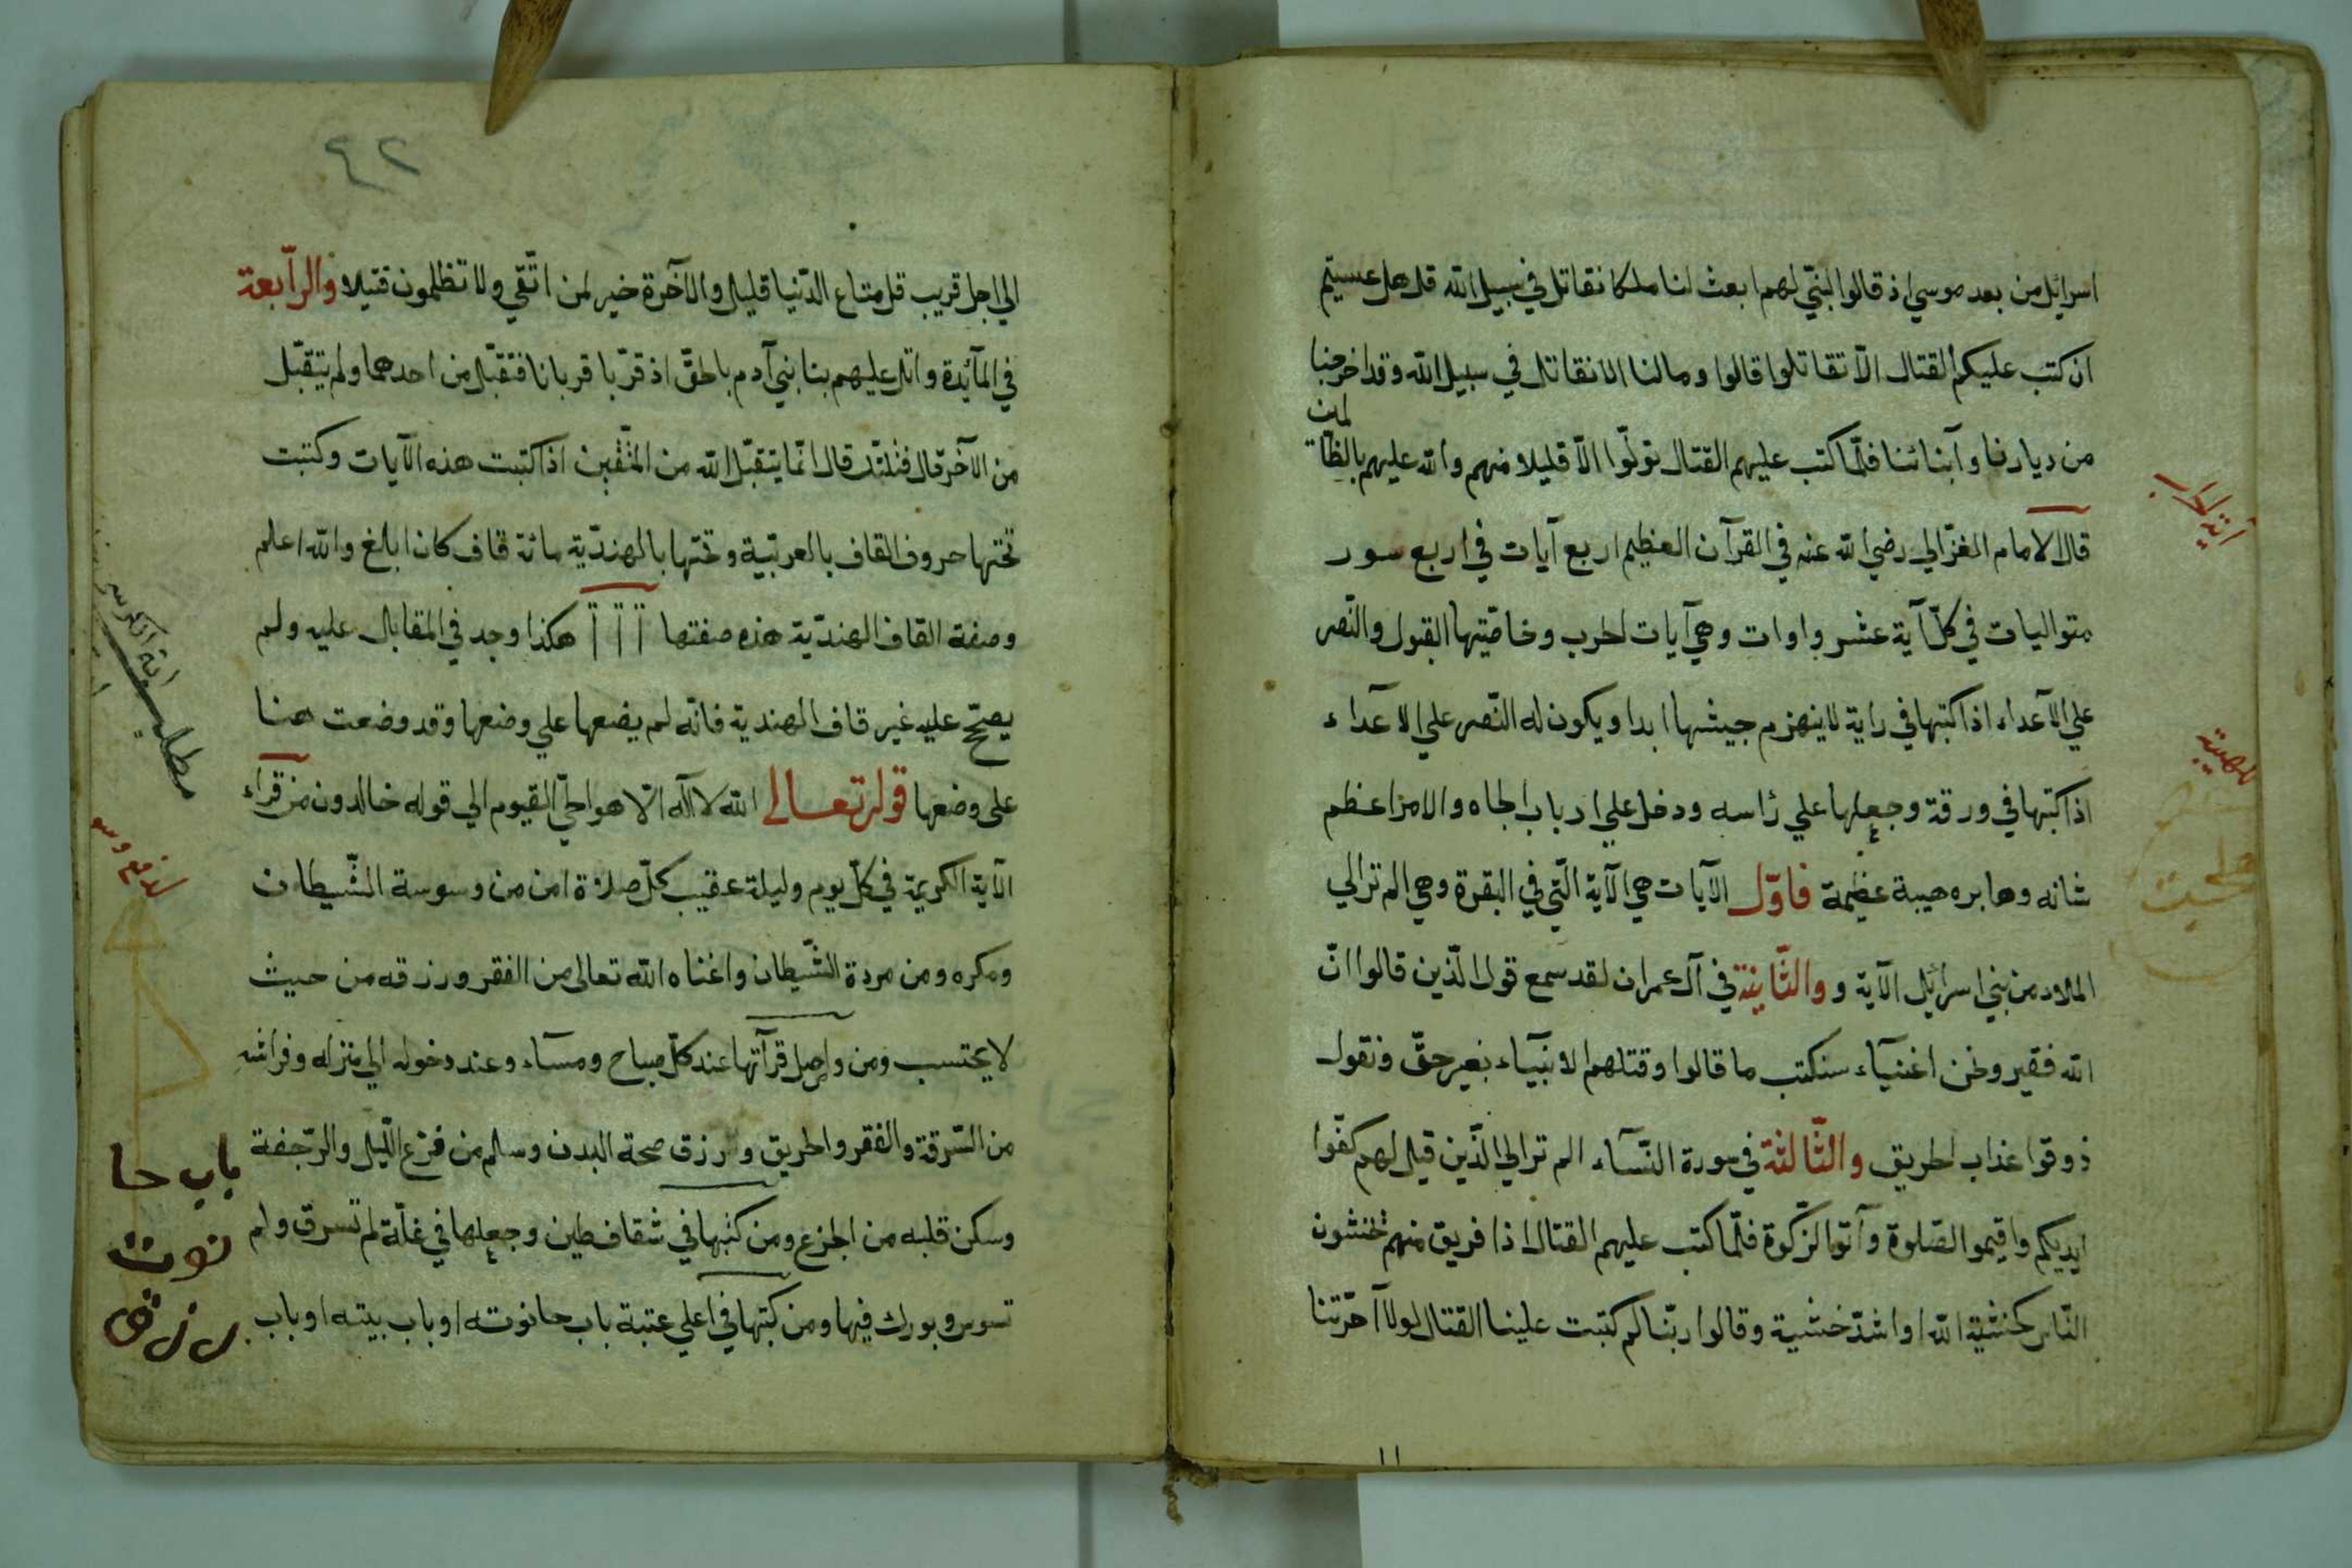 اسرائيل من بعد موسي اذ قالوا لنبي لهم ابعث لنا ملكا نقاتل في سبيل الله قل هل عسيتم
ان كتب عليكم القتال الّا تقاتلوا قالوا ومالنا الا نقاتل في سبيل الله وقد اخرجنا
من ديارنا وآبنائنا فلمّا كتب عليهم القتال تولّوا الّا قليلا منهم والله عليهم بالظا
لمين
قال الامام الغزّالي رضي الله عنه في القرآن العظيم اربع آيات في اربع سور
متواليات في كلّ آية عشر واوات وهي آيات الحرب وخاصّيتها القبول والنّصر
علي الآعداء اذا كتبها في راية لا ينهزم جيشها ابدا ويكون له النّصر علي الاعداء
اذا كتبها في ورقة وجعلها علي رٔاسه ودخل علي ارباب الجاه والامراعظم
شانه وهابره هيبة عظيمة فاوّل الآيات هي الآية الّتي في البقرة وهي الم تر الي
الملاء من بني اسرائيل الآية و والثّانية في آل عمران لقد سمع قول الّذين قالوا انّ
الله فقير ونحن اغنيآء سنكتب ما قالوا وقتلهم الانبيآء بغير حقّ ونقول
ذوقوا عذاب الحريق والثّالثة في سورة النّسآء الم تر الي الّذين قيل لهم كفّوا
ايديكم واقيموا الصّلوة وآتوا الزّكوة فلمّا كتب عليهم القتال اذا فريق منهم يخشون
النّاس كخشية الله او اشدّ خشية وقالوا ربّنا لم كتبت علينا القتال لولا آخّرتنا
آية الحرب
للهيبة
٤٢
الي اجل قريب قل متاع الدّنيا قليل والآخرة خير لمن اتّقي ولا تظلمون فتيلا والرّابعة
في المآئدة واتل عليهم بنا بني آدم بالحقّ اذ قرّبا قربانا فتقبّل من احدهما ولم يتقبّل
من الآخر قال فنلتلك قال انّما يتقبّل الله من المتّقين اذا كتبت هذه الآيات وكتبت
تحتها حروف القاف بالعربيّة وتحتها بالهنديّة مائة قاف كان ابلغ والله اعلم
وصفة القاف الهنديّة هذه صفتها أ أ أ هكذا وجد في المقابل عليه ولم
يصحّ عليه غير قاف الهندية فانّه لم يضعها علي وضعها وقد وضعت هنا
علي وضعها قوله تعالي الله لا اله الّا هو الحيّ القيوم الي قوله خالدون من قراء
الآية الكريمة في كلّ يوم وليلة عقيب كلّ صلاة امن من وسوسة الشّيطان
ومكره ومن مردة الشّيطان واغناه الله تعالى من الفقر ورزقه من حيث
لا يحتسب ومن واصل قرآتها عند كلّ صباح ومسآء وعند دخوله الي منزله وفراشه
من السّرقة والفقر والحريق ورزق صحة البدن وسلم من فزع اللّيل والرّجفة
وسكن قلبه من الجزع ومن كتبها في شقاف طين وجعلها في غلّة لم تسرق ولم
تسوس وبورك فيها ومن كتبها في اعلي عتبة باب حانوته او باب بيته او باب
مطلب آية الكرسي
باب حا
نوت